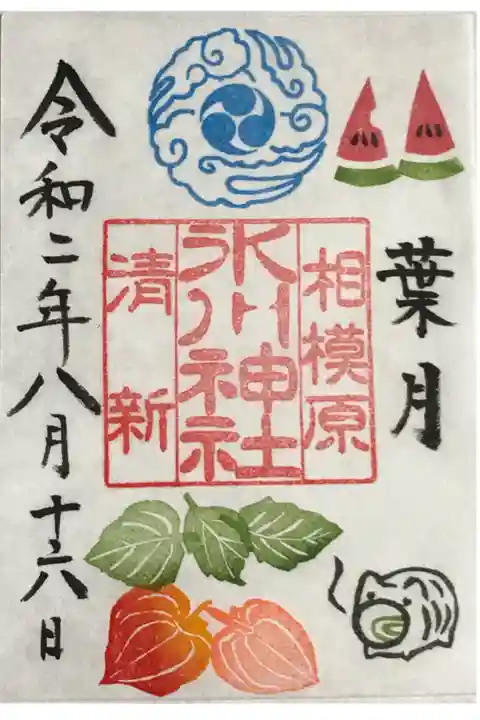 葉月
相模原
氷川神社
清新
令和二年八月十六日